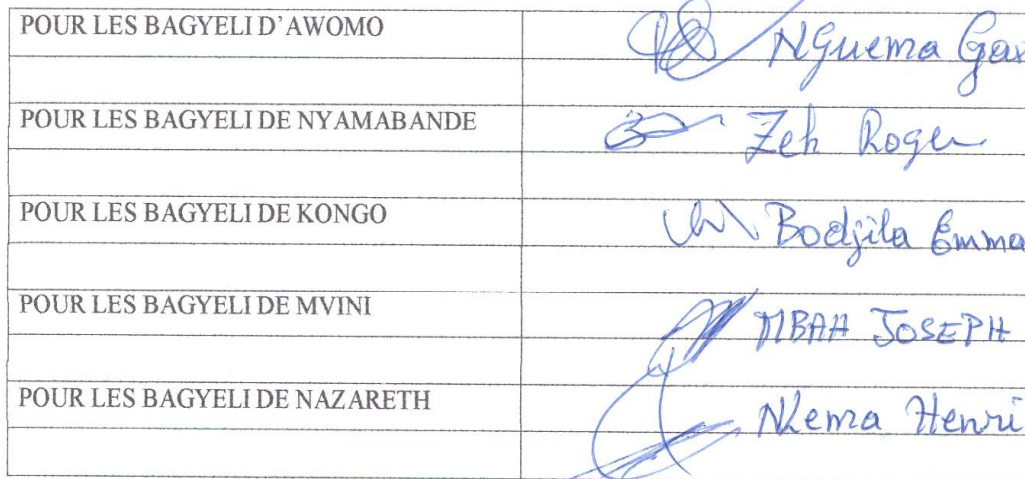 POUR LES BAGYELI D'AWOMO Nguema
POUR LES BAGYELI DE NYAMABANDE Zeh Roger
POUR LES BAGYELI DE KONGO Bodjila Emma
POUR LES BAGYELI DE MVINI MBAH JOSEPH
POUR LES BAGYELI DE NAZARETH Nkema Henri